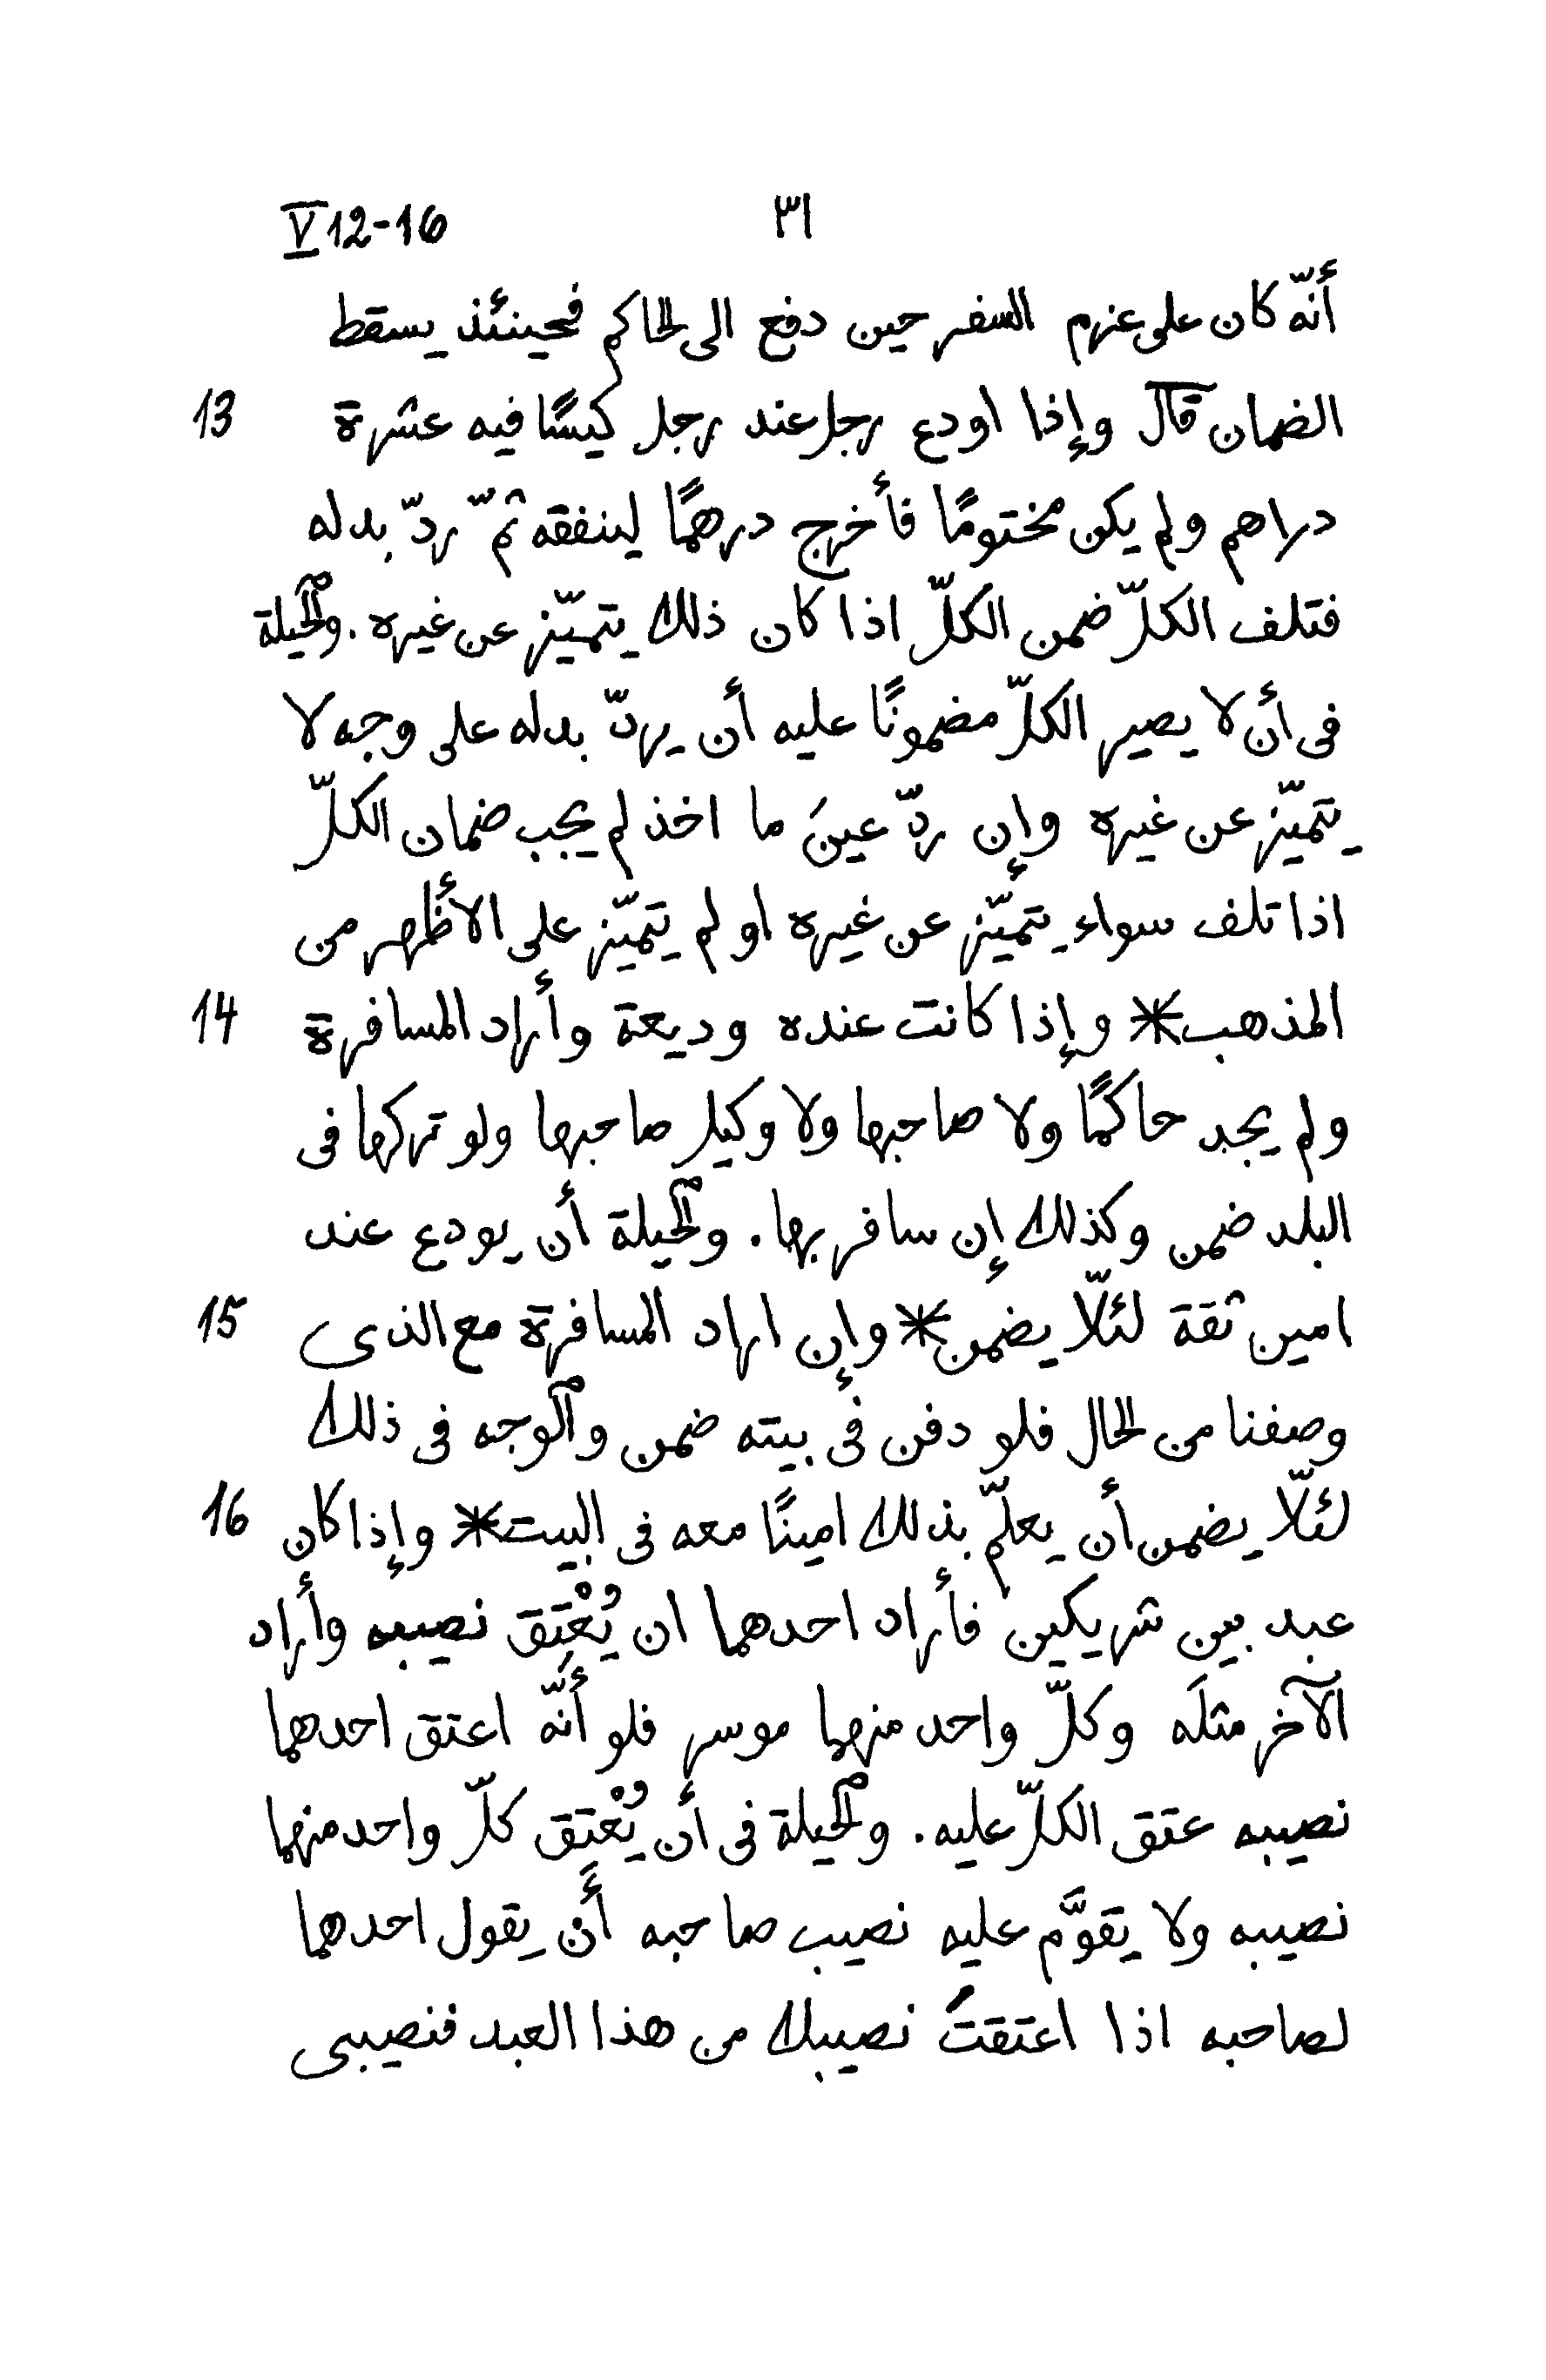 V 12-16 ٣١
أنّه كان على عزم السفر حين دفع الى الحاكم فحينئذ يسقط
13 الضمان قال وإذا اودع رجل عند رجل كيسًا فيه عشرة
دراهم ولم يكن مختومًا فأخرج درهمًا لينفقه ثمّ ردّ بدله
فتلف الكلّ ضمن الكلّ اذا كان ذلك يتميّز عن غيره. وٱلحيلة
فى أن لا يصير الكلّ مضمونًا عليه أن يردّ بدله على وجه لا
يتميّز عن غيره وإن ردّ عينَ ما اخذ لم يجب ضمان الكلّ
اذا تلف سواء يتميّز عن غيره او لم يتميّز على الأظهر من
14 المذهب* وإذا كانت عنده وديعة وأراد المسافرة
ولم يجد حاكمًا ولا صاحبها ولا وكيل صاحبها ولو تركها فى
البلد ضمن وكذلك إن سافر بها. وٱلحيلة أن يودع عند
15 امين ثقة لئلّا يضمن* وإن اراد المسافرة مع الذى
وصفنا من الحال فلو دفن فى بيته ضمن وٱلوجه فى ذلك
16 لئلّا يضمن أن يعلّم بذلك امينًا معه فى البيت* وإذا كان
عبد بين شريكين فأراد احدهما ان يُعْتِقَ نصيبه وأراد
الآخر مثلَه وكلّ واحد منهما موسر فلو أنّه اعتق احدهما
نصيبه عتق الكلّ عليه. وٱلحيلة فى أن يُعْتِق كلّ واحد منهما
نصيبه ولا يقوَّم عليه نصيب صاحبه أن يقول احدهما
لصاحبه اذا اعتقتَ نصيبك من هذا العبد فنصيبى